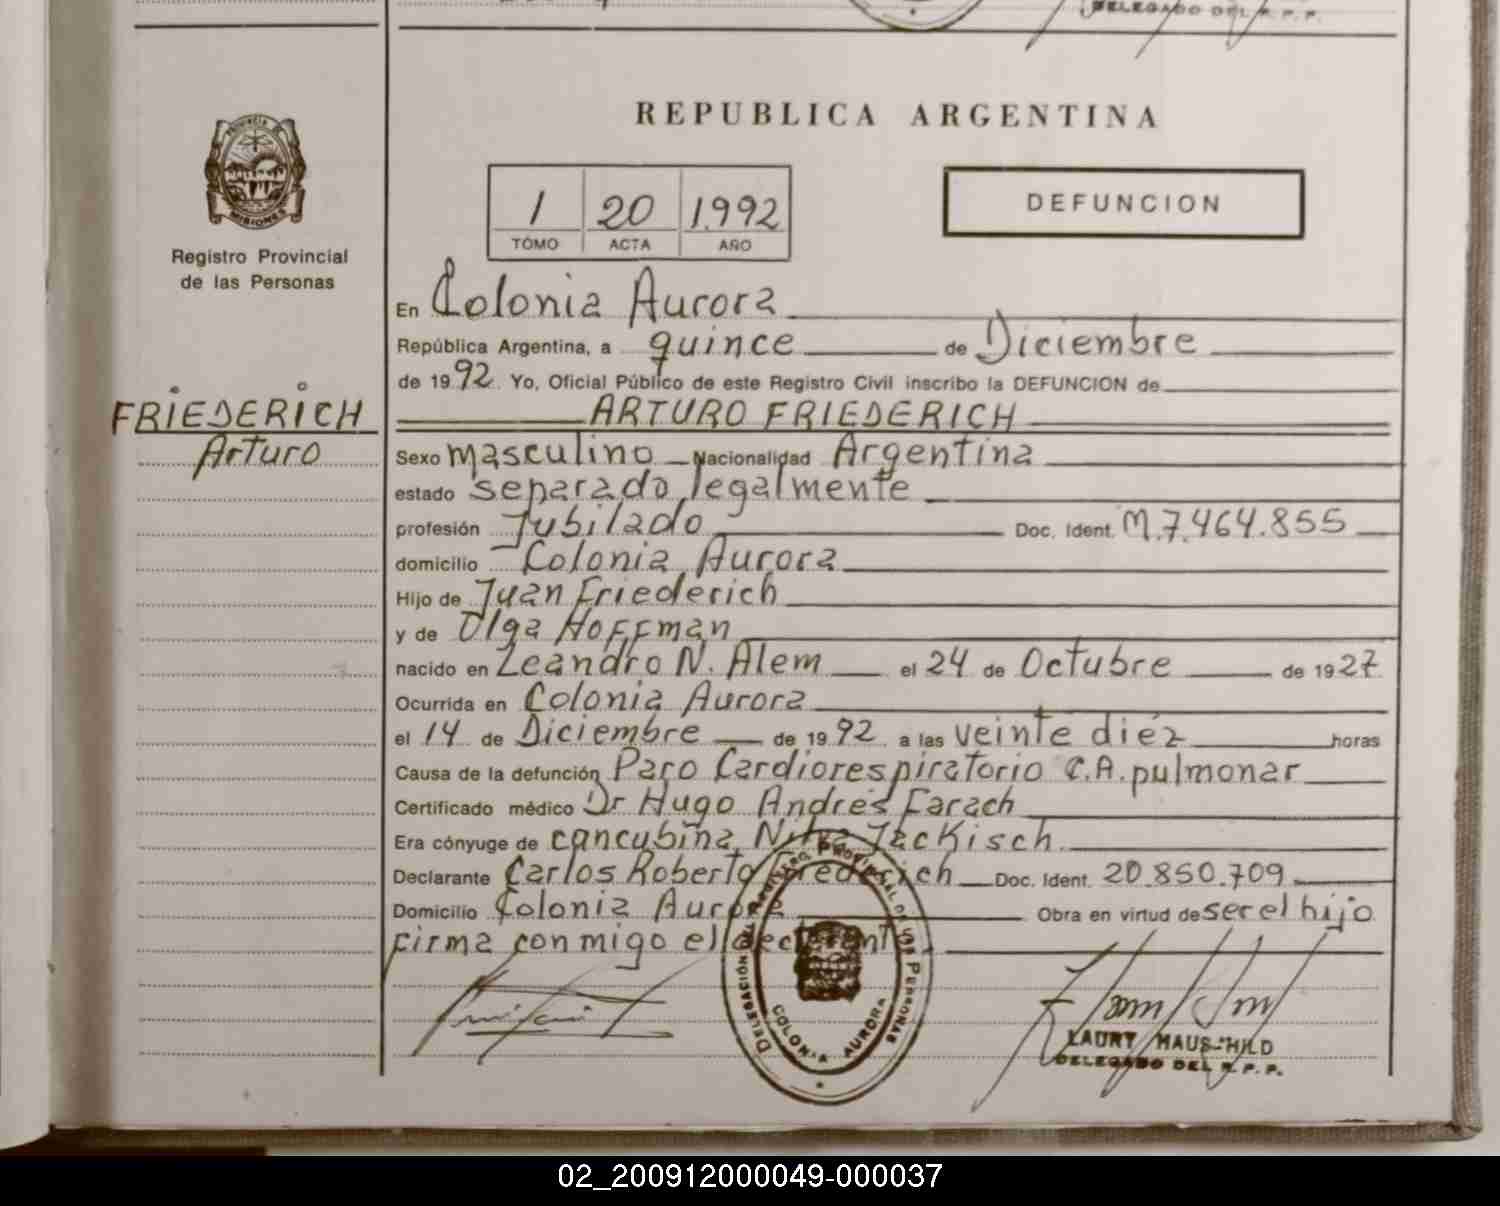 DELEGADO DEL R. P. P.
PROVINCIA DE
MISIONES
Registro Provincial
de las Personas
FRIEDERICH
Arturo
REPUBLICA ARGENTINA
1 20 1992
TOMO ACTA AÑO
DEFUNCION
En Colonia Aurora
República Argentina, a quince de Diciembre
de 1992. Yo, Oficial Público de este Registro Civil inscribo la DEFUNCION de
ARTURO FRIEDERICH
Sexo masculino Nacionalidad Argentina
estado separado legalmente
profesión Jubilado Doc. Ident. M.7.464.855
domicilio Colonia Aurora
Hijo de Juan Friederich
y de Olga Hoffman
nacido en Leandro N. Alem el 24 de Octubre de 1927
Ocurrida en Colonia Aurora
el 14 de Diciembre de 1992 a las veinte diez horas
Causa de la defunción Paro Cardiorespiratorio C.A. pulmonar
Certificado médico Dr Hugo Andrés Farach
Era cónyuge de cancubina, Jackisch
Declarante Carlos Roberto Frederich Doc. Ident. 20.850.709
Domicilio Colonia Aurora Obra en virtud de ser el hijo
firma conmigo el declarante
DELEGACIÓN DEL REGISTRO PROVINCIAL DE LAS PERSONAS
COLONIA AURORA
LAURY HAUSCHILD
DELEGADO DEL R. P. P.
02_200912000049-000037